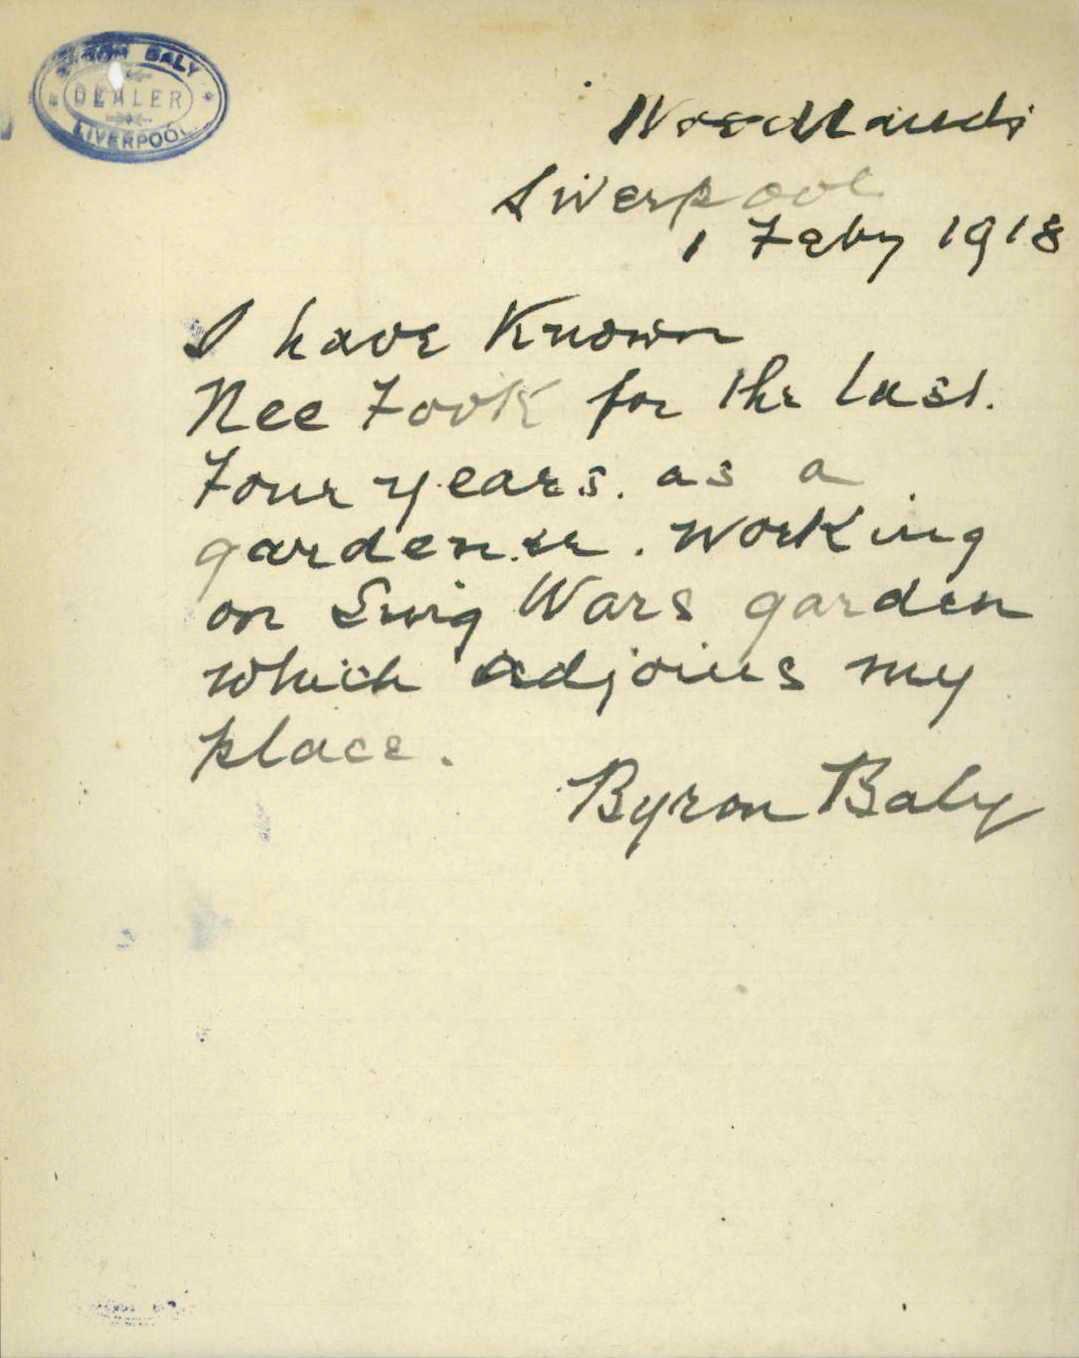 BYRON BALY
DEALER
LIVERPOOL
Woodlands
Liverpool
1 Feby 1918
I have Known
Nee Fook for the last.
Four years. as a
gardener. working
on Wars garden
which adjoins my
place.
Byron Baly